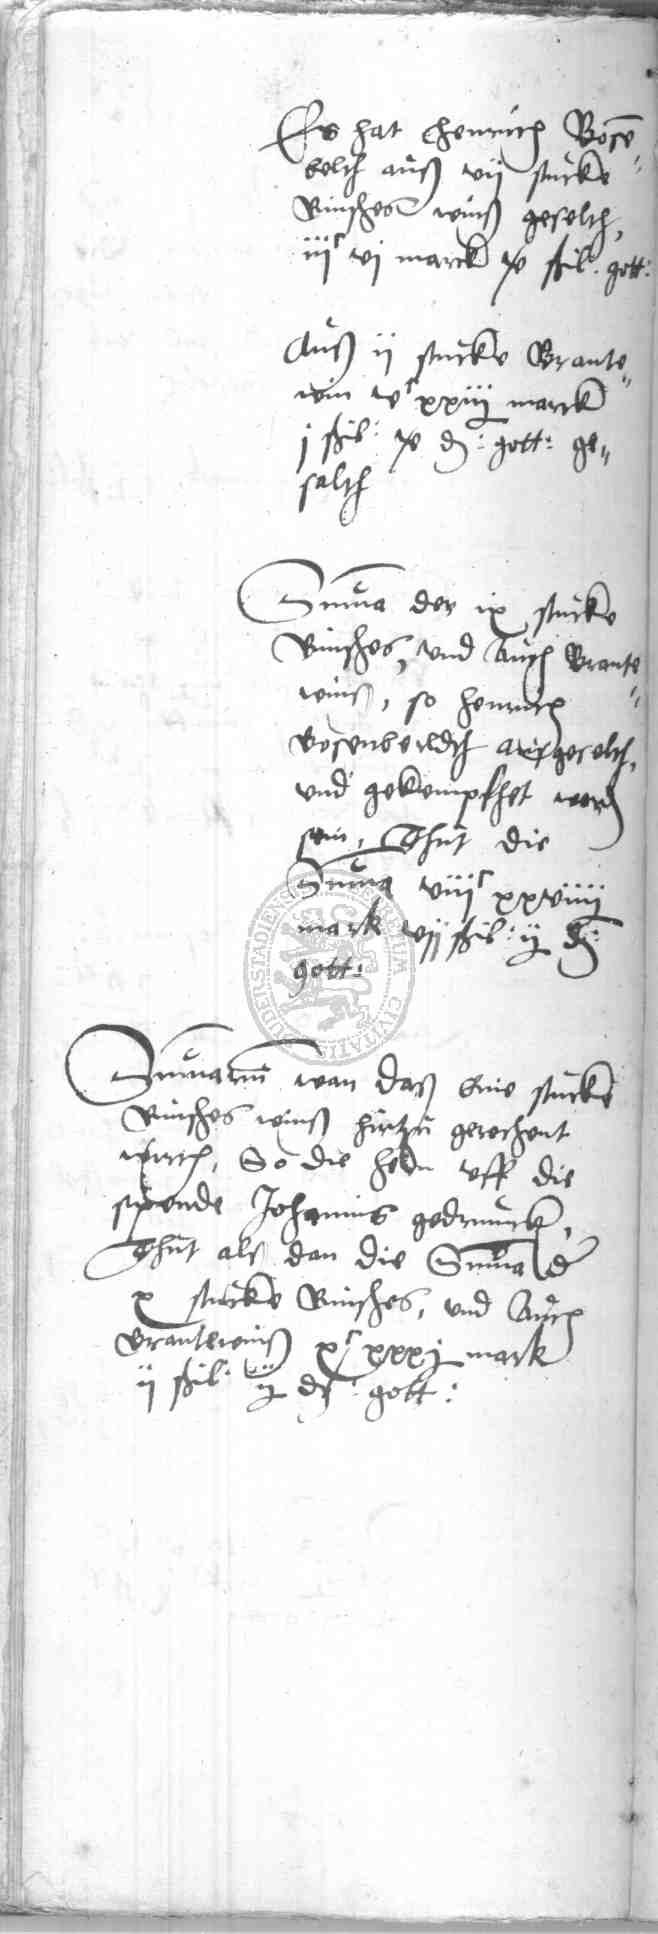 Es hat Henrich Bosen-
belch auß vij stucke
Rinsches winß geselth,
iiiᶜ vj marck x schil: gott:
Auß ij stucke Brante-
win vᶜ xxiij marck
j schil: x d: gott: ge-
salth
Summa der ix stucke
Rinsches, und Auch Brante-
winß, so Henrich
Bosenbeildch außgeselth,
und gekempffet worden
sein, Thut die
Summa viiiᶜ xxviiii
mark vij schil: ij d:
gott:
Summarum wan daß eine stucke
Rinsches winß hirtzu gerechent
wirth, So die hern uff die
spende Johannis gedrunck,
Thut als dan die Summa der
x stucke Rinsches, und Auch
Brantewinß xᶜ xxxj mark
ij schil: ij d: gott:
SIGILLUM CIVITATIS DUDERSTADIENSIS